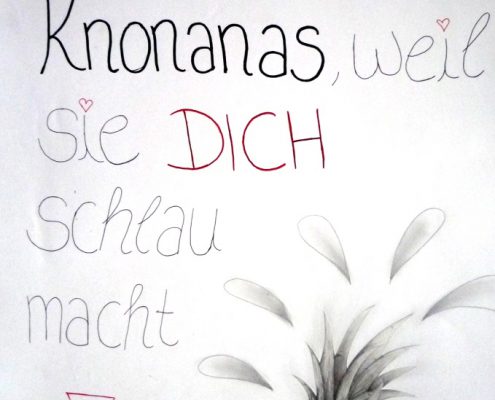 Knonanas, weil
sie DICH
schlau
macht